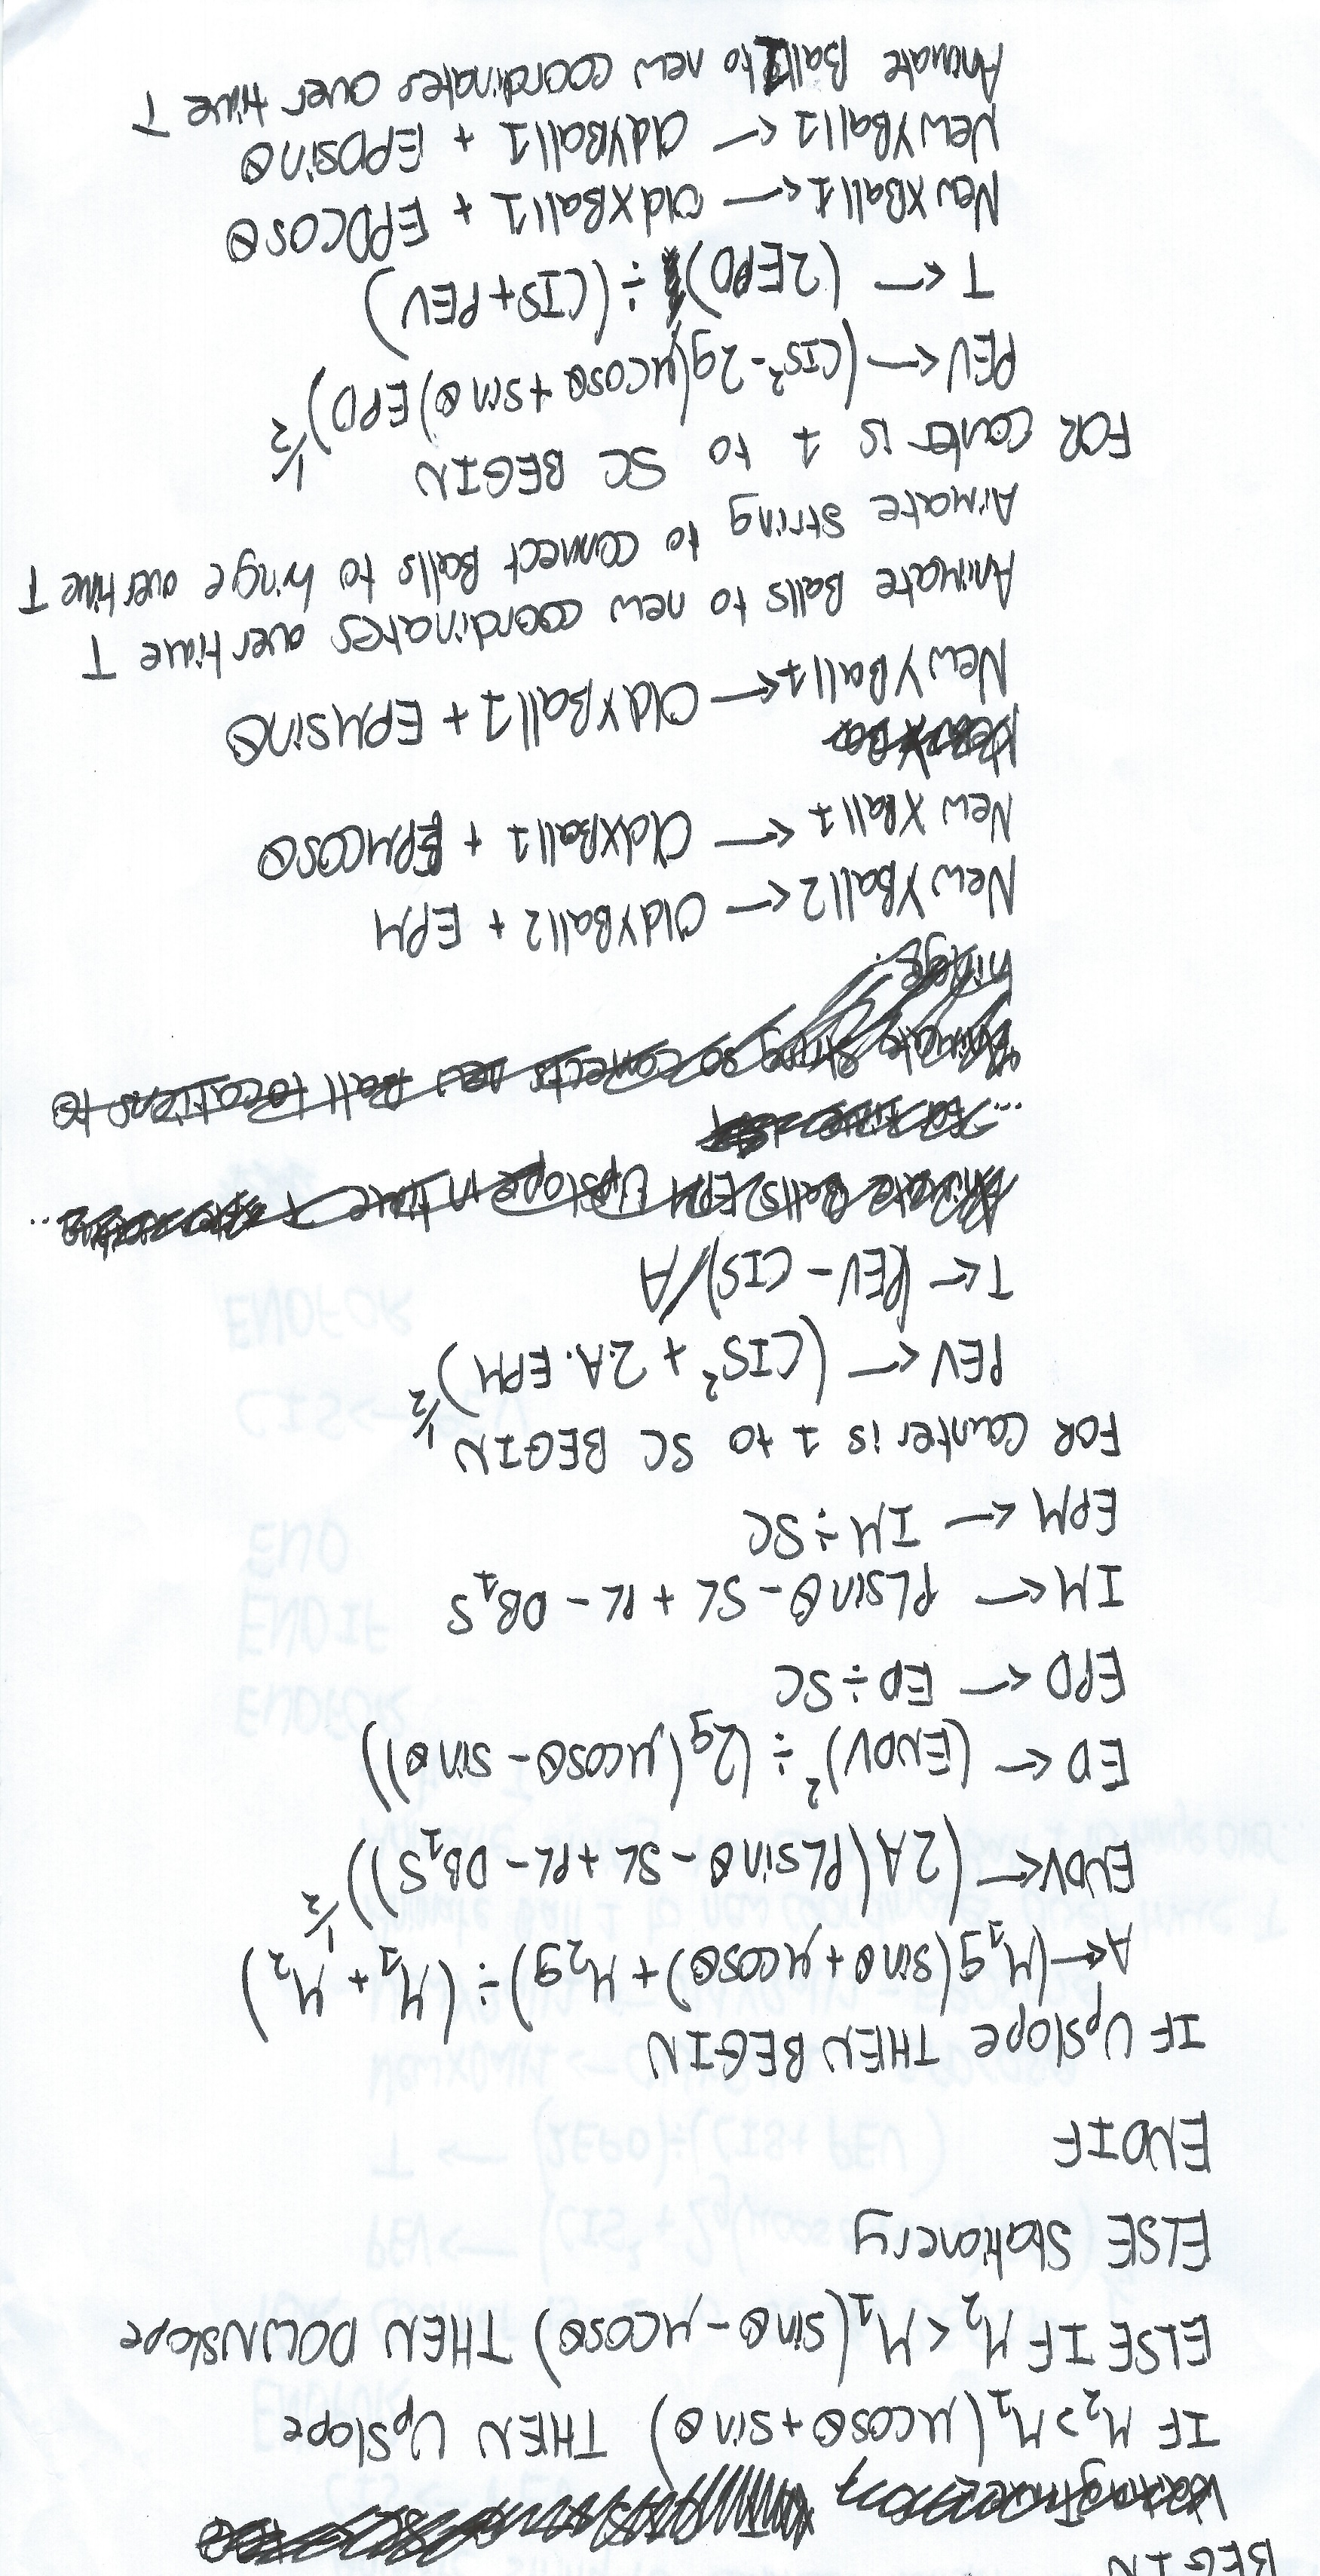 BEGIN
IF M₂>M₁(μcosθ+sinθ) THEN Upslope
ELSE IF M₂<M₁(sinθ-μcosθ) THEN DOWNslope
ELSE Stationery
ENDIF
IF Upslope THEN BEGIN
A←(M₁g(sinθ+μcosθ)+M₂g)÷(M₁+M₂)
ENDV←(2A(PLsinθ-SL+PL-DB₁S))^1/2
ED ← (ENDV)²÷(2g(μcosθ-sinθ))
EPD ← ED÷SC
IM ← PLsinθ-SL+PL-DB₁S
EPM ← IM÷SC
FOR Counter is 1 to SC BEGIN
PEV ← (CIS²+2.A.EPM)^1/2
T ← (PEV-CIS)/A
Animate Balls EPM Upslope in time T
Animate string so connects new Ball locations to
hinge.
NewYBall2 ← OldYBall2 + EPM
New XBall1 ← OldXBall1 + EPMcosθ
NewYBall1 ← OldYBall1 + EPMsinθ
Animate Balls to new coordinates over time T
Aimate string to connect Balls to hinge over time T
FOR Conter is 1 to SC BEGIN
PEV ← (CIS²-2g(μcosθ+sinθ)EPD)^1/2
T ← (2EPD)÷(CIS+PEV)
NewXBall1 ← OldXBall1 + EPDcosθ
NewYBall1 ← OldYBall1 + EPDsinθ
Animate Ball1 to new coordinates over time T